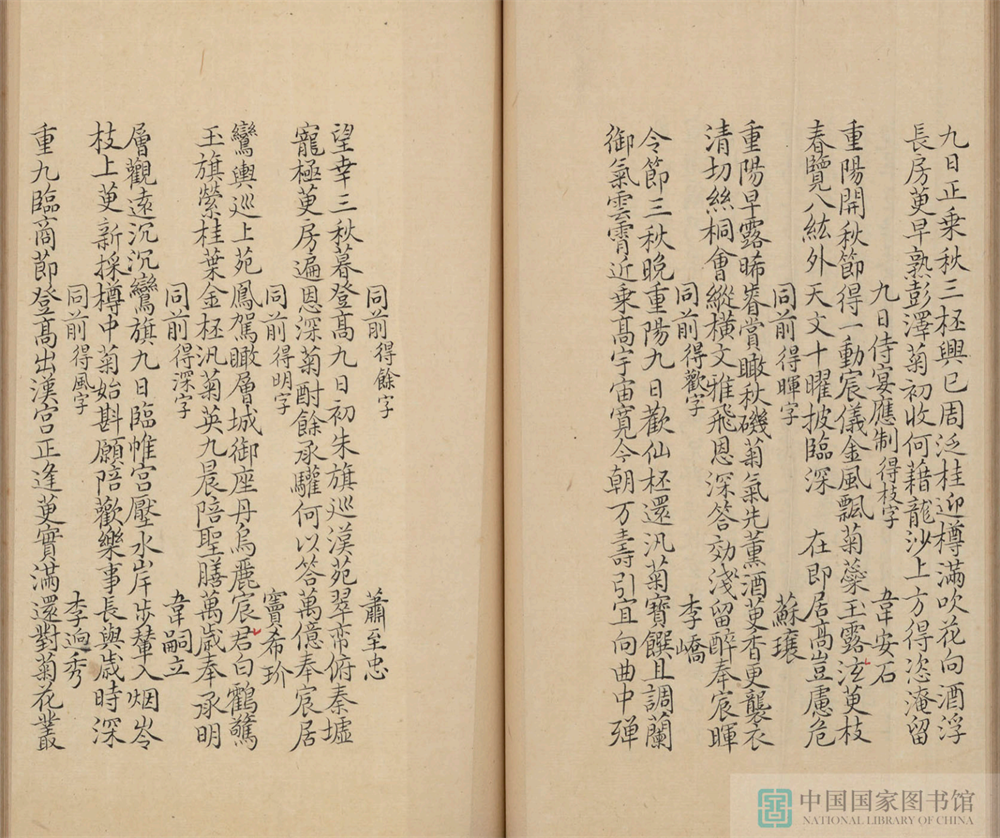 九日正乗秋三柸興已周泛桂迎樽滿吹花向酒浮
長房萸早熟彭澤菊初收何藉龍沙上方得恣淹留
九日侍宴應制得枝字 韋安石
重陽開秋節得一動宸儀金風飄菊蘂玉露泫萸枝
春覽八紘外天文十曜披臨深 在即居高豈慮危
同前得暉字 蘇瓌
重陽早露晞眷賞瞰秋磯菊氣先薰酒萸香更襲衣
清切絲桐會縱橫文雅飛恩深答効淺留醉奉宸暉
同前得歡字 李嶠
令節三秋晚重陽九日歡仙柸還汎菊寶饌且調蘭
御氣雲霄近乗高宇宙寬今朝万壽引宜向曲中弹
同前得餘字 蕭至忠
望幸三秋暮登高九日初朱旗巡漢苑翠帟俯秦墟
寵極萸房遍恩深菊酎餘承驩何以答萬億奉宸居
同前得明字 竇希玠
鸞輿巡上苑鳳駕瞰層城御座丹烏麗宸君白鶴驚
玉旗縈桂葉金柸汎菊英九晨陪聖膳萬歳奉承明
同前得深字 韋嗣立
層觀遠沉沉鸞旗九日臨帷宮壓水岸步輦入烟岑
枝上萸新採樽中菊始斟願陪歡樂事長與歳時深
同前得風字 李逈秀
重九臨商節登高出漢宮正逢萸實滿還對菊花叢
中国国家图书馆
NATIONAL LIBRARY OF CHINA